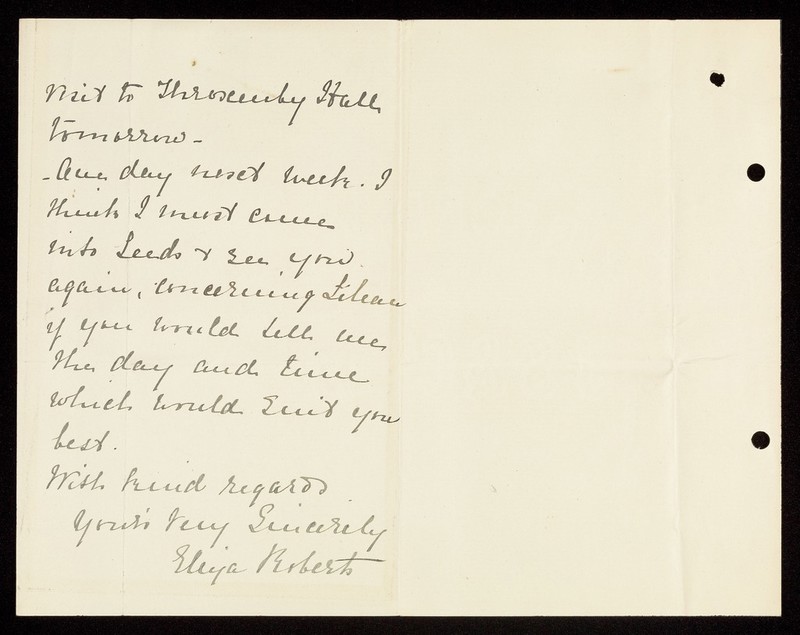 visit to Throxenby Hall
tomorrow -
- One day next week. I
think I must come
into Leeds & see you
again, concerning Lilian
if you would tell me
the day and time
which would suit you
best.
With kind regards
Yours Very Sincerely
Eliza Roberts